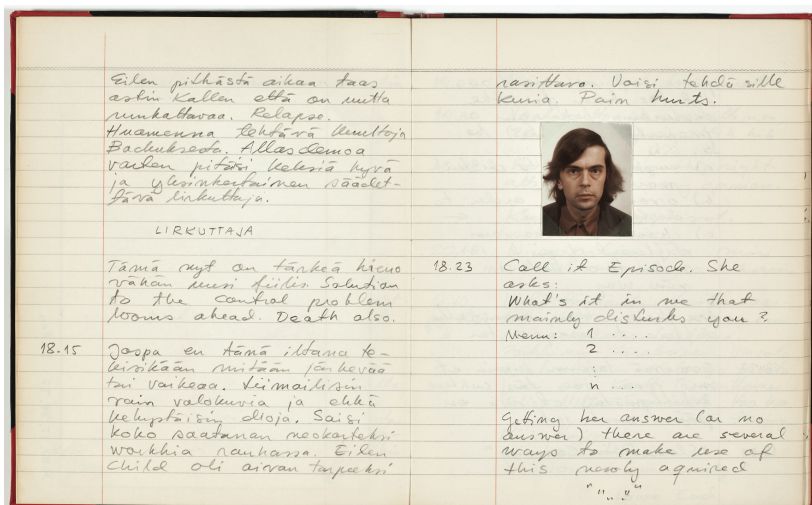 Eilen pitkästä aikaa taas
ostin Kallen että on mutta
munkattavaa. Relapse.
Huomenna tehtävä kuultoja
Bachuksesta. Allasdemoa
varten pitäisi keksiä hyvä
ja yksinkertainen säädet-
tävä lirkuttaja.
LIRKUTTAJA
Tämä nyt on tärkeä hieno
vähän uusi fiilis Solution
to the control problem
looms ahead. Death also.
18.15 Jospa en tänä iltana te-
kisikään mitään järkevää
tai vaikeaa. Liimailisin
vain valokuvia ja ehkä
kehystäisin dioja. Saisi
koko saatanan neokorteksi
workkia rauhassa. Eilen
Child oli aivan tarpeeksi
rasittava. Voisi tehdä sille
kuria. Pain hurts.
18.23 Call it Episode. She
asks:
What's it in me that
mainly disturbs you?
Menu: 1 ....
2 ....
:
n ....
Getting her answer (or no
answer) there are several
ways to make use of
this newly aquired